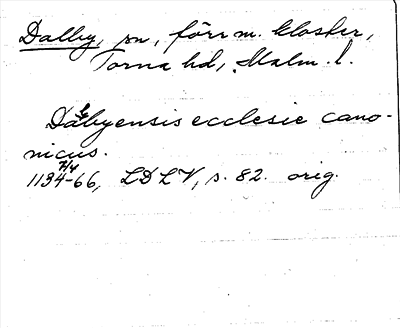 Dalby, sn, förr m. kloster,
Torna hd, Malm. l.
Dalbyensis ecclesie cano-
nicus.
1134-66, LDLV, s. 82. orig.